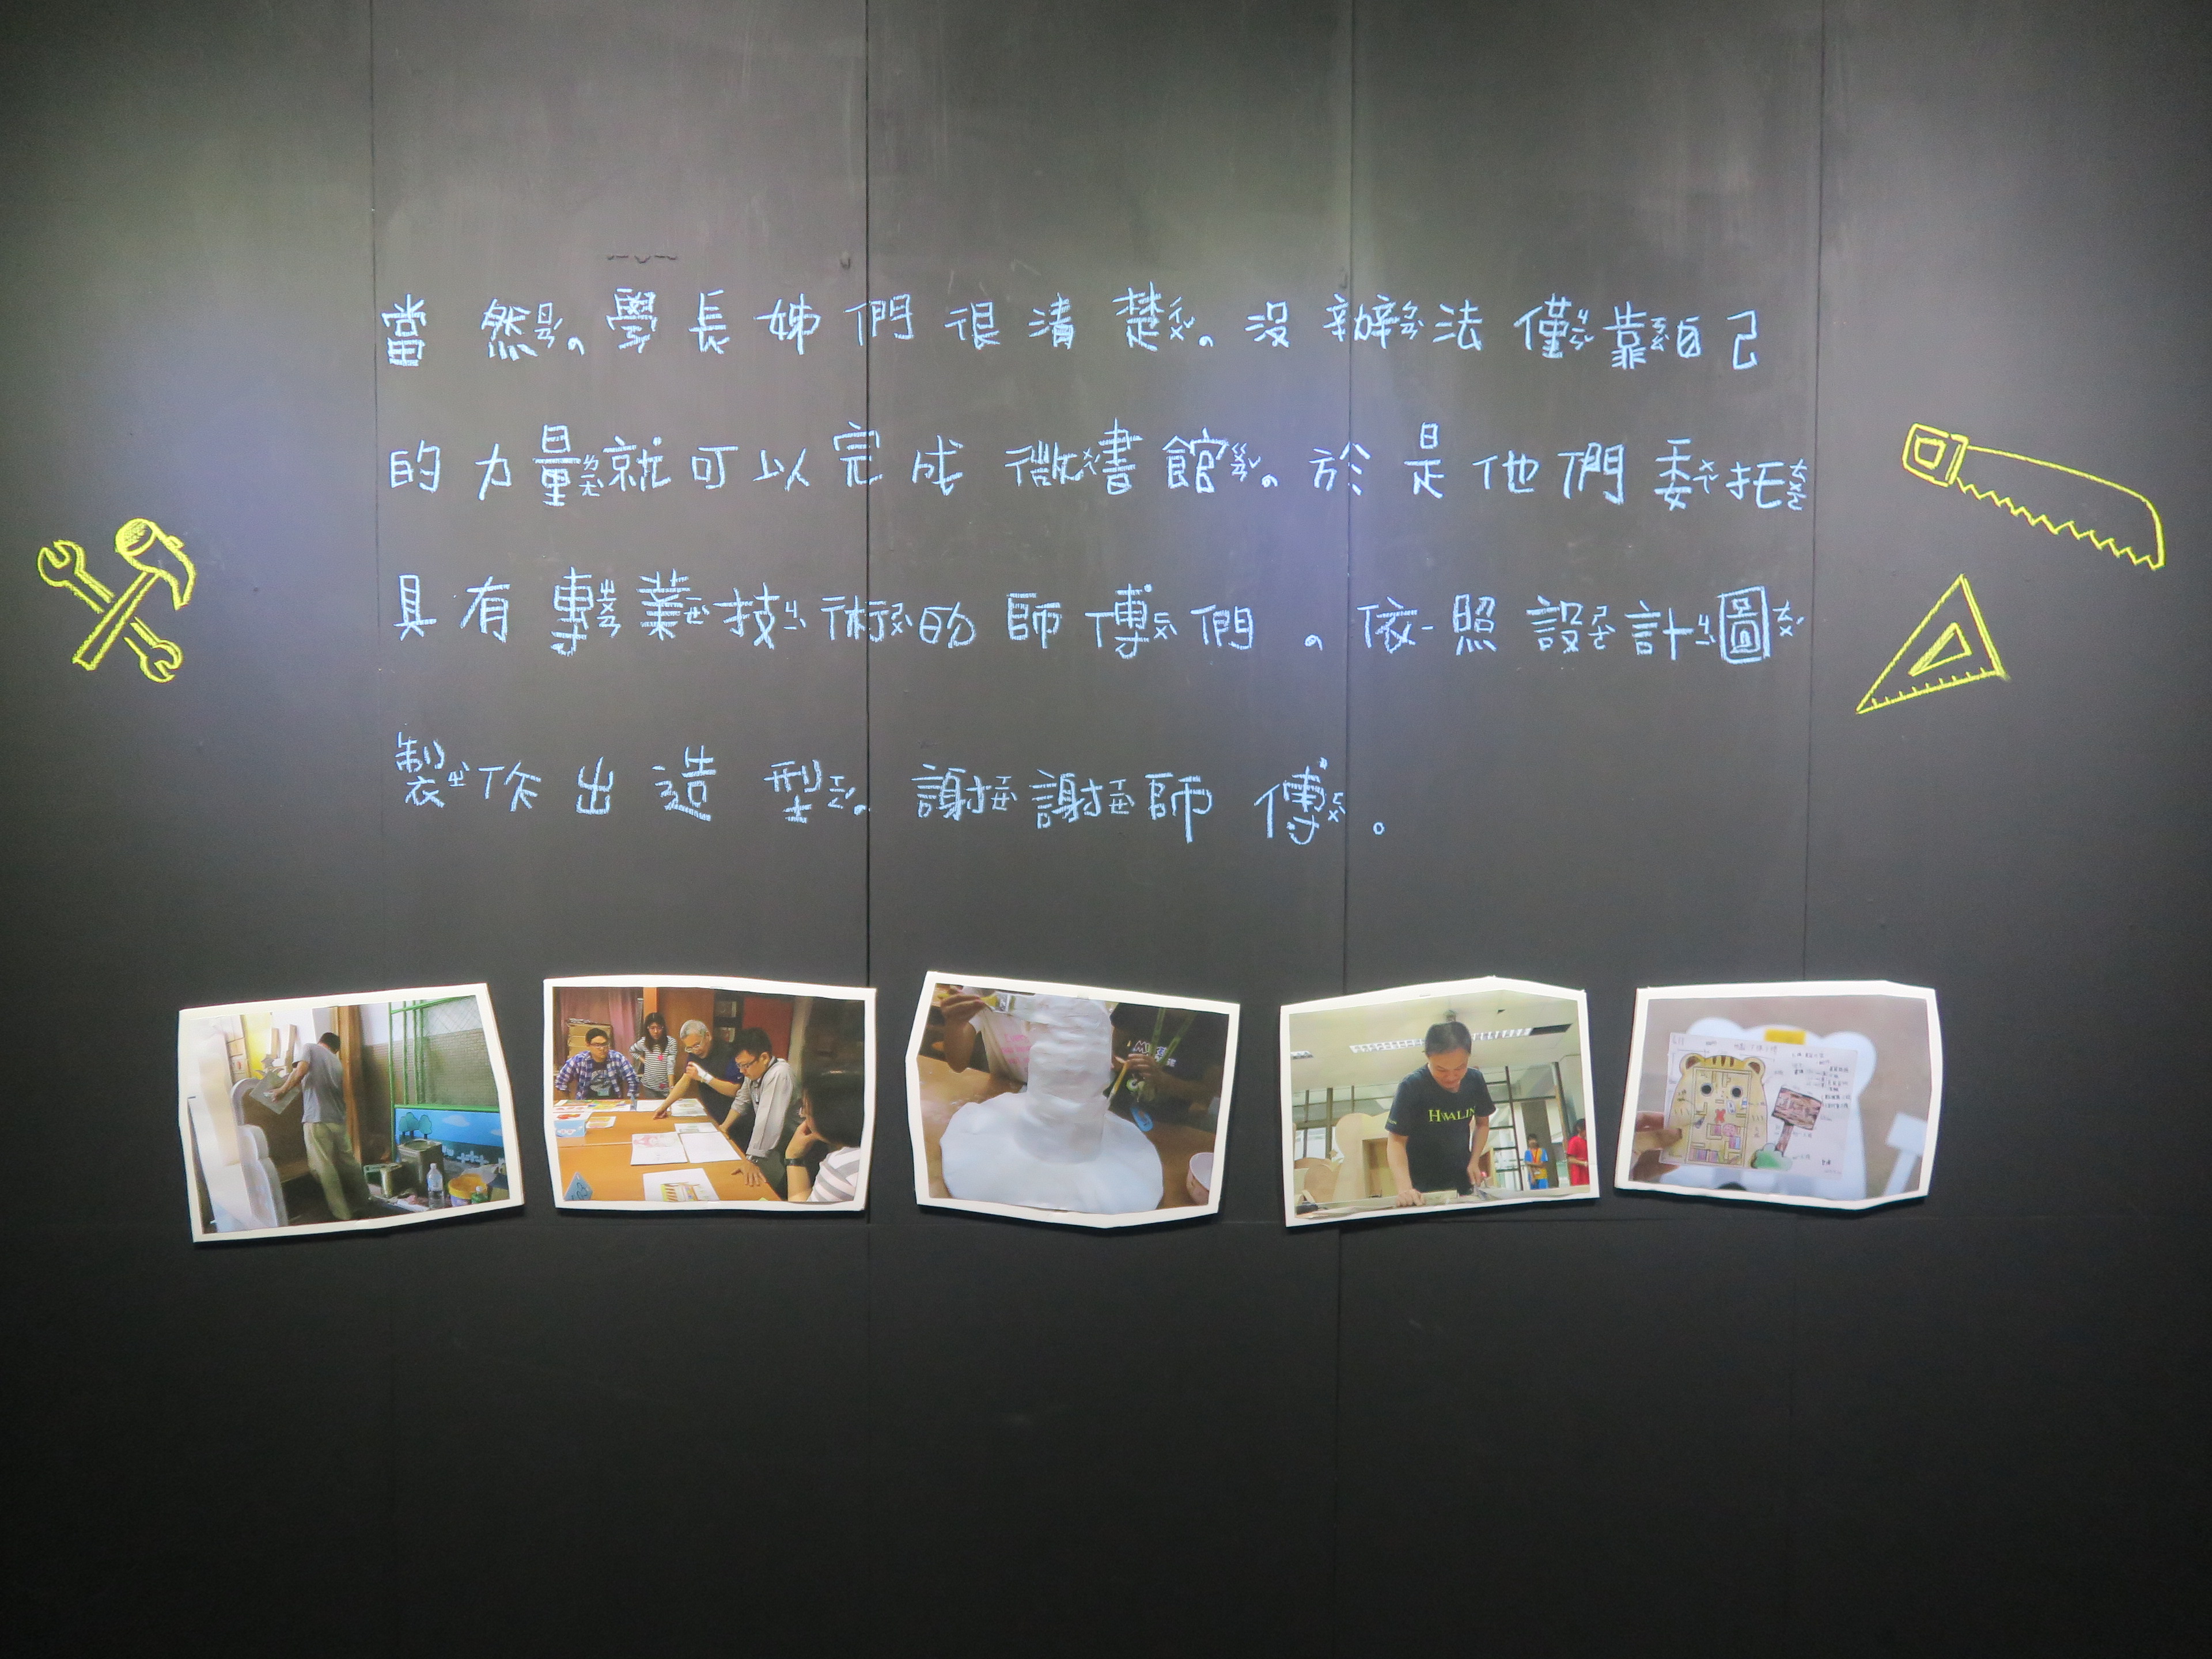 當然，學長姊們很清楚，沒辦法僅靠自己
的力量就可以完成微書館，於是他們委托
具有專業技術的師傅們，依照設計圖
製作出造型，謝謝師傅。
HWALIN